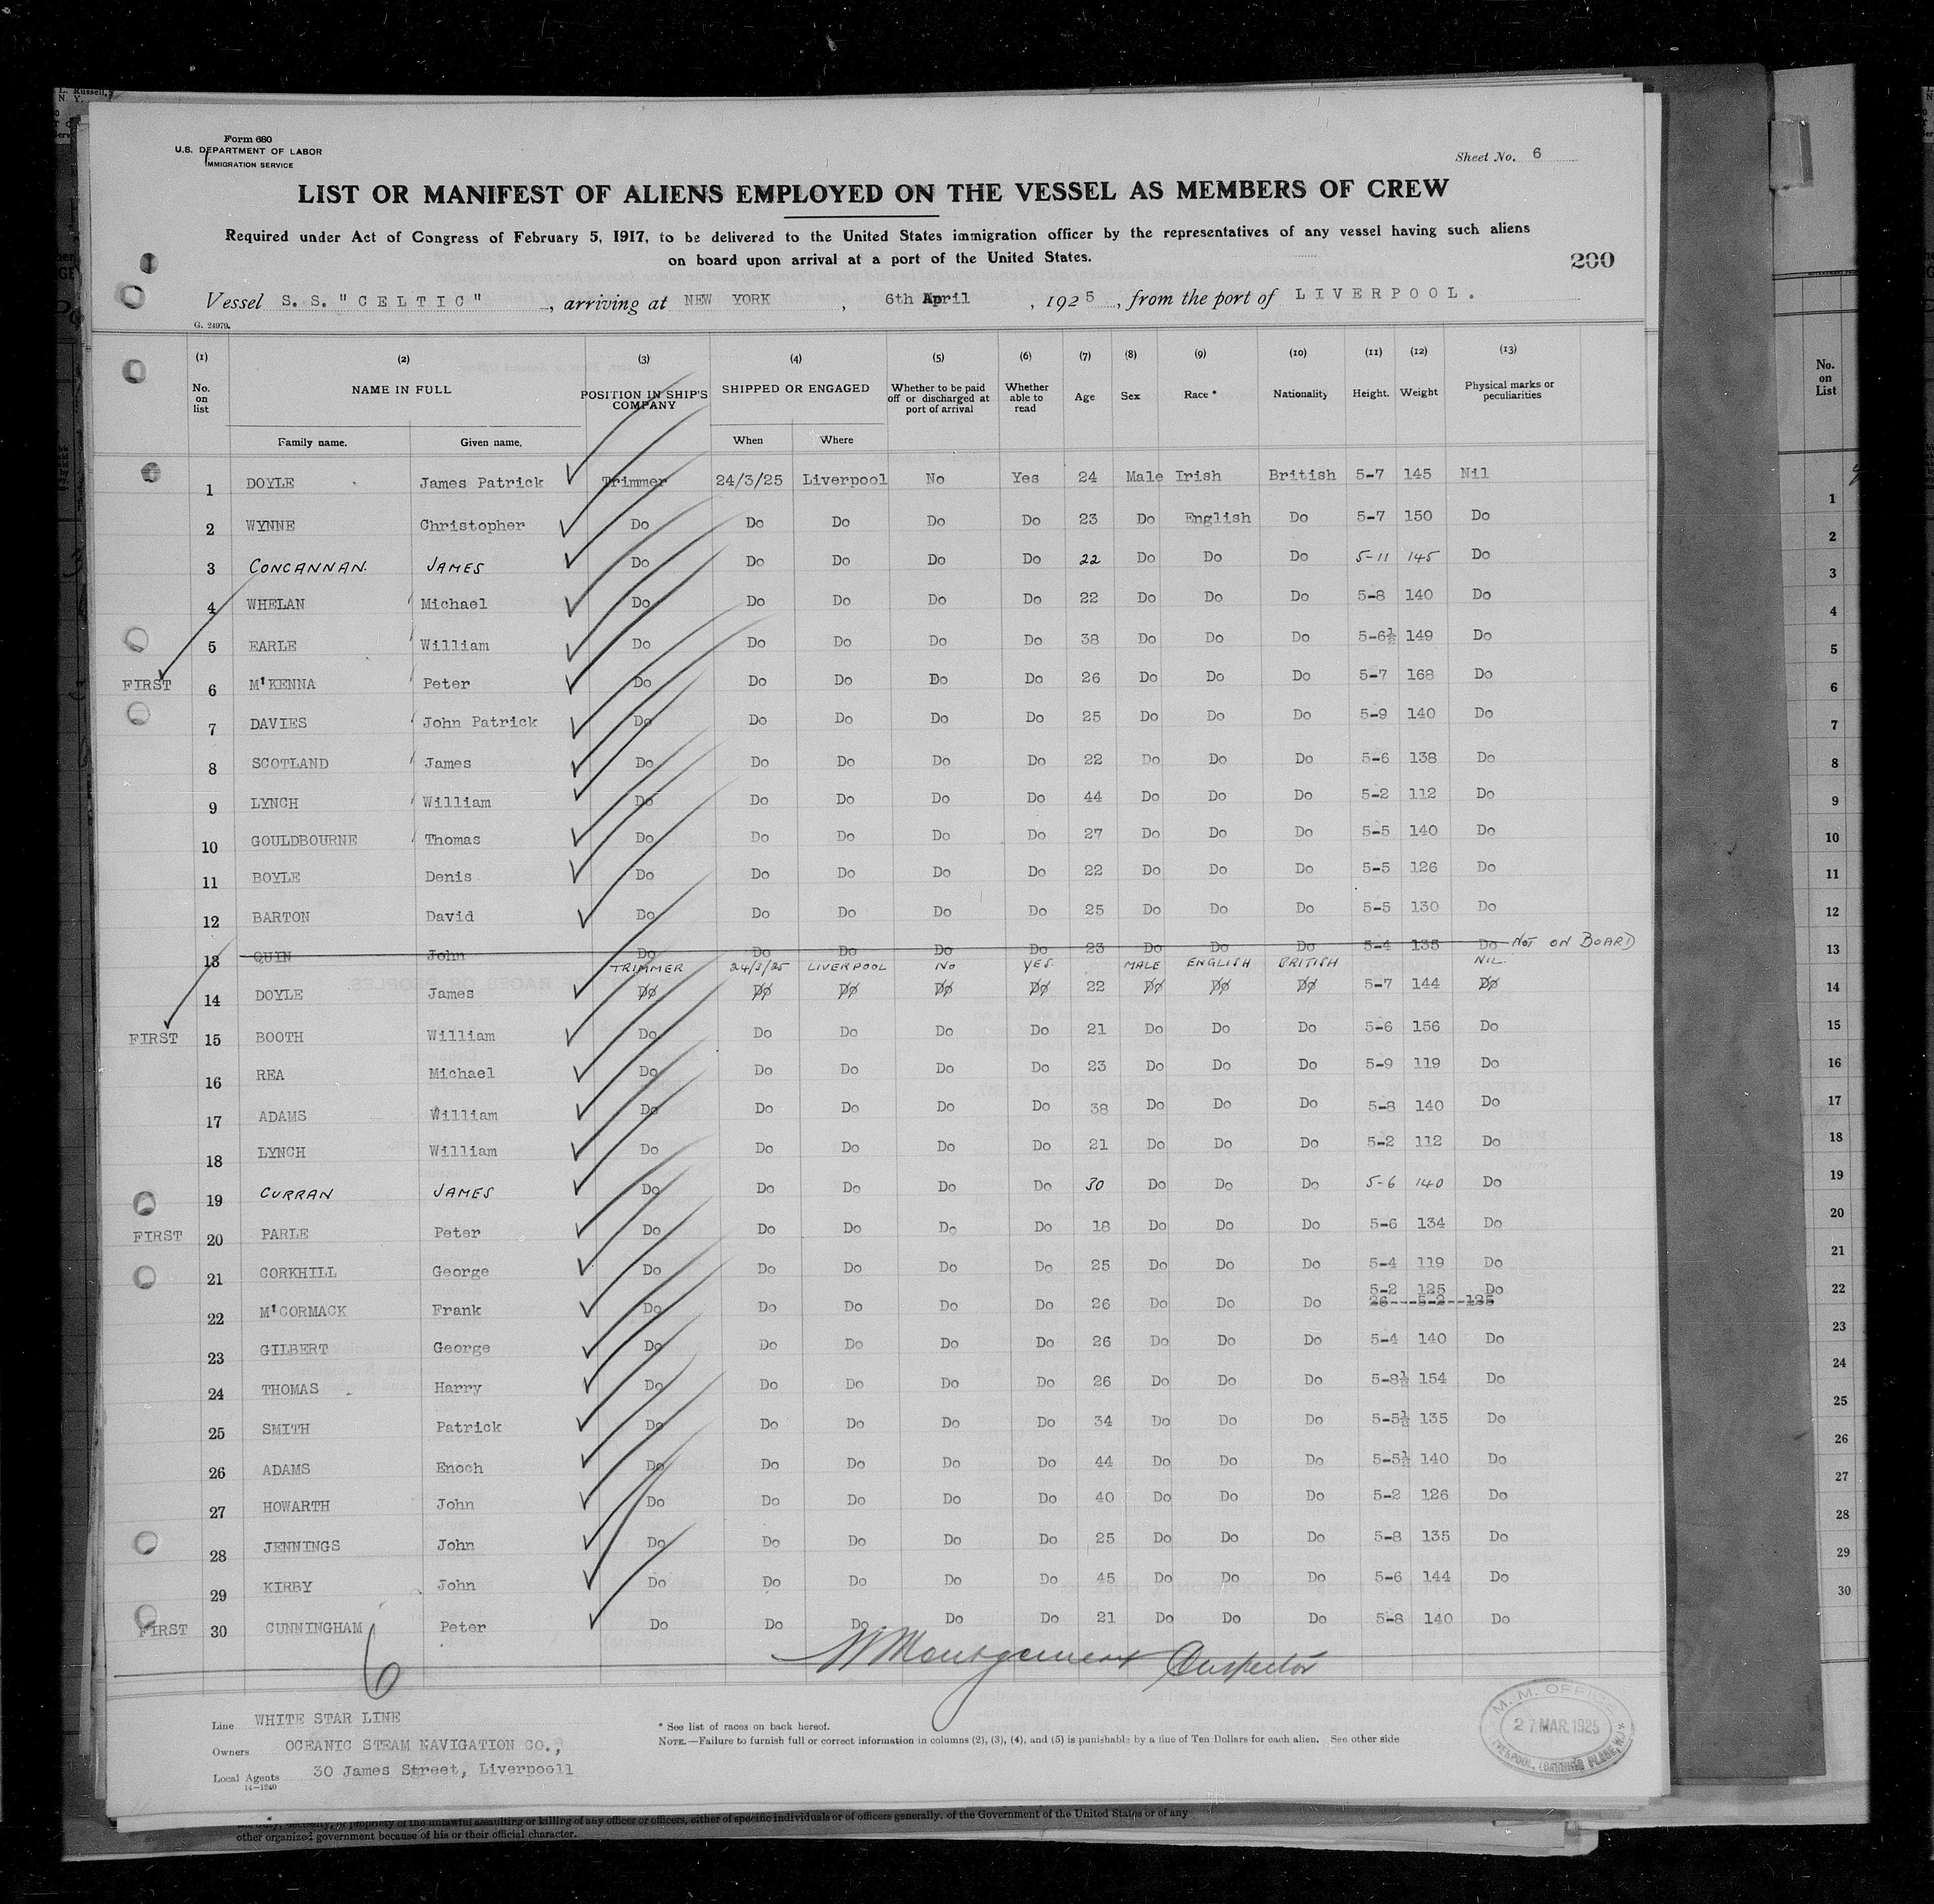 Form 680
U.S. DEPARTMENT OF LABOR
IMMIGRATION SERVICE
Sheet No. 6
LIST OR MANIFEST OF ALIENS EMPLOYED ON THE VESSEL AS MEMBERS OF CREW
Required under Act of Congress of February 5, 1917, to be delivered to the United States immigration officer by the representatives of any vessel having such aliens
on board upon arrival at a port of the United States.
200
Vessel S. S. "CELTIC", arriving at NEW YORK, 6th April, 1925, from the port of LIVERPOOL.
G. 24979.
(1) (2) (3) (4) (5) (6) (7) (8) (9) (10) (11) (12) (13)
No. on list NAME IN FULL POSITION IN SHIP'S COMPANY SHIPPED OR ENGAGED Whether to be paid off or discharged at port of arrival Whether able to read Age Sex Race * Nationality Height. Weight Physical marks or peculiarities
Family name. Given name. When Where
1 DOYLE James Patrick Trimmer 24/3/25 Liverpool No Yes 24 Male Irish British 5-7 145 Nil
2 WYNNE Christopher Do Do Do Do Do 23 Do English Do 5-7 150 Do
3 CONCANNAN. JAMES Do Do Do Do Do 22 Do Do Do 5-11 145 Do
4 WHELAN Michael Do Do Do Do Do 22 Do Do Do 5-8 140 Do
5 EARLE William Do Do Do Do Do 38 Do Do Do 5-6½ 149 Do
FIRST 6 M'KENNA Peter Do Do Do Do Do 26 Do Do Do 5-7 168 Do
7 DAVIES John Patrick Do Do Do Do Do 25 Do Do Do 5-9 140 Do
8 SCOTLAND James Do Do Do Do Do 22 Do Do Do 5-6 138 Do
9 LYNCH William Do Do Do Do Do 44 Do Do Do 5-2 112 Do
10 GOULDBOURNE Thomas Do Do Do Do Do 27 Do Do Do 5-5 140 Do
11 BOYLE Denis Do Do Do Do Do 22 Do Do Do 5-5 126 Do
12 BARTON David Do Do Do Do Do 25 Do Do Do 5-5 130 Do
13 QUIN John Do Do Do Do Do 23 Do Do Do 5-4 135 Do NOT ON BOARD
TRIMMER 24/3/25 LIVERPOOL NO YES. MALE ENGLISH BRITISH NIL.
14 DOYLE James Do Do Do Do Do 22 Do Do Do 5-7 144 Do
FIRST 15 BOOTH William Do Do Do Do Do 21 Do Do Do 5-6 156 Do
16 REA Michael Do Do Do Do Do 23 Do Do Do 5-9 119 Do
17 ADAMS William Do Do Do Do Do 38 Do Do Do 5-8 140 Do
18 LYNCH William Do Do Do Do Do 21 Do Do Do 5-2 112 Do
19 CURRAN JAMES Do Do Do Do Do 30 Do Do Do 5-6 140 Do
FIRST 20 PARLE Peter Do Do Do Do Do 18 Do Do Do 5-6 134 Do
21 CORKHILL George Do Do Do Do Do 25 Do Do Do 5-4 119 Do
5-2 125 Do
22 M'CORMACK Frank Do Do Do Do Do 26 Do Do Do 26---5-2--125
23 GILBERT George Do Do Do Do Do 26 Do Do Do 5-4 140 Do
24 THOMAS Harry Do Do Do Do Do 26 Do Do Do 5-8½ 154 Do
25 SMITH Patrick Do Do Do Do Do 34 Do Do Do 5-5½ 135 Do
26 ADAMS Enoch Do Do Do Do Do 44 Do Do Do 5-5½ 140 Do
27 HOWARTH John Do Do Do Do Do 40 Do Do Do 5-2 126 Do
28 JENNINGS John Do Do Do Do Do 25 Do Do Do 5-8 135 Do
29 KIRBY John Do Do Do Do Do 45 Do Do Do 5-6 144 Do
FIRST 30 CUNNINGHAM Peter Do Do Do Do Do 21 Do Do Do 5-8 140 Do
6
Inspector
Line WHITE STAR LINE
Owners OCEANIC STEAM NAVIGATION CO.,
Local Agents 30 James Street, Liverpooll
14-1240
* See list of races on back hereof.
NOTE.—Failure to furnish full or correct information in columns (2), (3), (4), and (5) is punishable by a fine of Ten Dollars for each alien. See other side
M. M. OFFICE
27 MAR. 1925
LIVERPOOL
propriety of the unlawful assaulting or killing of any officer or officers, either of specific individuals or of officers generally, of the Government of the United States or of any
other organized government because of his or their official character.
No. on List
1
2
3
4
5
6
7
8
9
10
11
12
13
14
15
16
17
18
19
20
21
22
23
24
25
26
27
28
29
30
L. Russell,
N. Y.